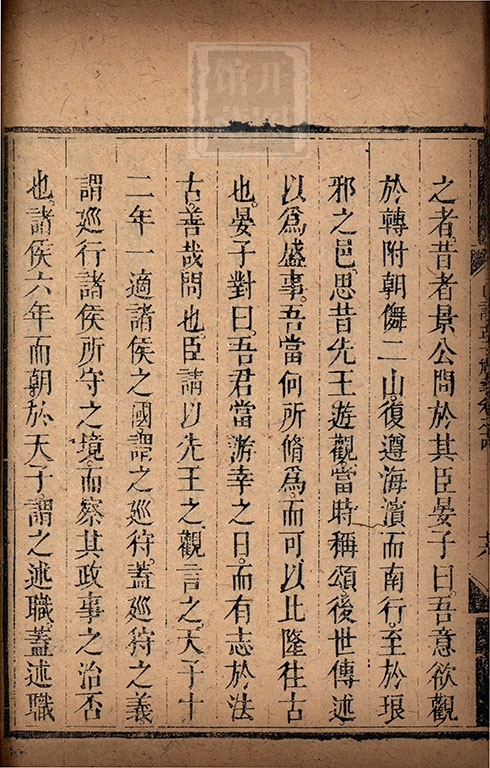 之者。昔者景公問於其臣晏子曰。吾意欲觀
於轉附朝儛二山。復遵海濱而南行。至於琅
邪之邑。思昔先王遊觀當時稱頌後世傳述
以爲盛事。吾當何所脩爲。而可以比隆往古
也。晏子對曰。吾君當游幸之日。而有志於法
古。善哉問也。臣請以先王之觀言之。天子十
二年一適諸侯之國。謂之廵狩。蓋廵狩之義
謂廵行諸侯所守之境。而察其政事之治否
也。諸侯六年而朝於天子。謂之述職。蓋述職